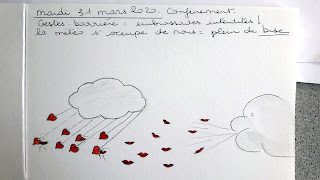 mardi 31 mars 2020. Confinement.
Gestes barrière : embrassades interdites !
la météo s'occupe de nous = plein de bise